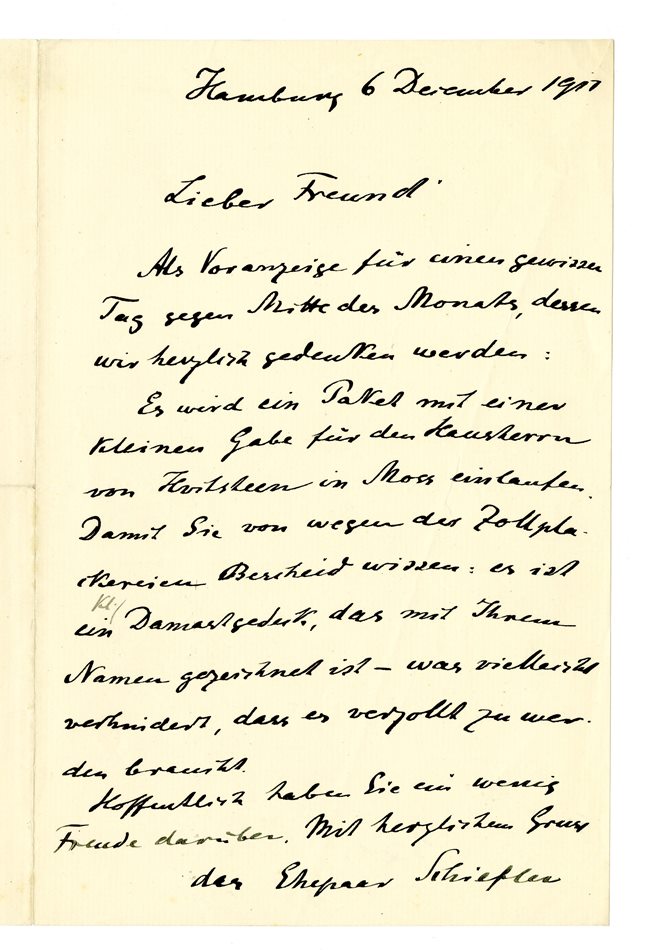 Hamburg 6 December 1911
Lieber Freund
Als Voranzeige für einen gewissen
Tag gegen Mitte des Monats, dessen
wir herzlich gedenken werden:
Es wird ein Paket mit einer
kleinen Gabe für den Hausherrn
von Hvitsteen in Moss einlaufen.
Damit Sie von wegen der Zollpla-
ckereien Bescheid wissen: es ist
kl.
ein Damastgedeck, das mit Ihrem
Namen gezeichnet ist – was vielleicht
verhindert, dass es verzollt zu wer-
den braucht.
Hoffentlich haben Sie ein wenig
Freude darüber. Mit herzlichem Gruss
das Ehepaar Schiefler